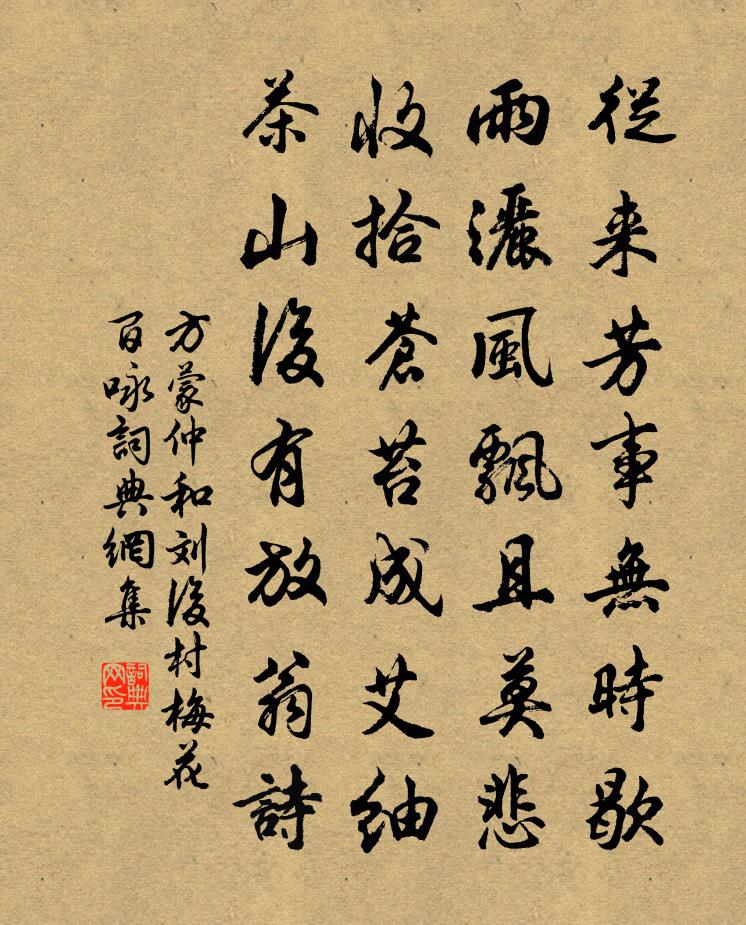 從来芳事無時歇
雨灑風飄且莫悲
收拾蒼苔成艾納
茶山後有放翁詩
方蒙仲和刘後村梅花
百咏詞典網集
詞典网印